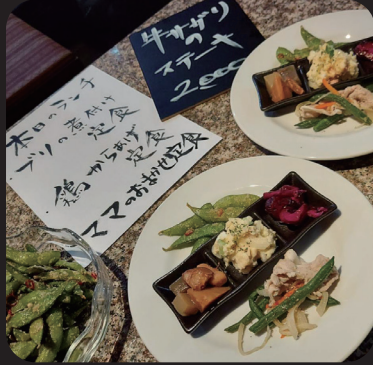 牛サガリ
の
ステーキ
2,000
本日のランチ
ブリの煮付け
定食
鶏からあげ定食
ママのおまかせ定食